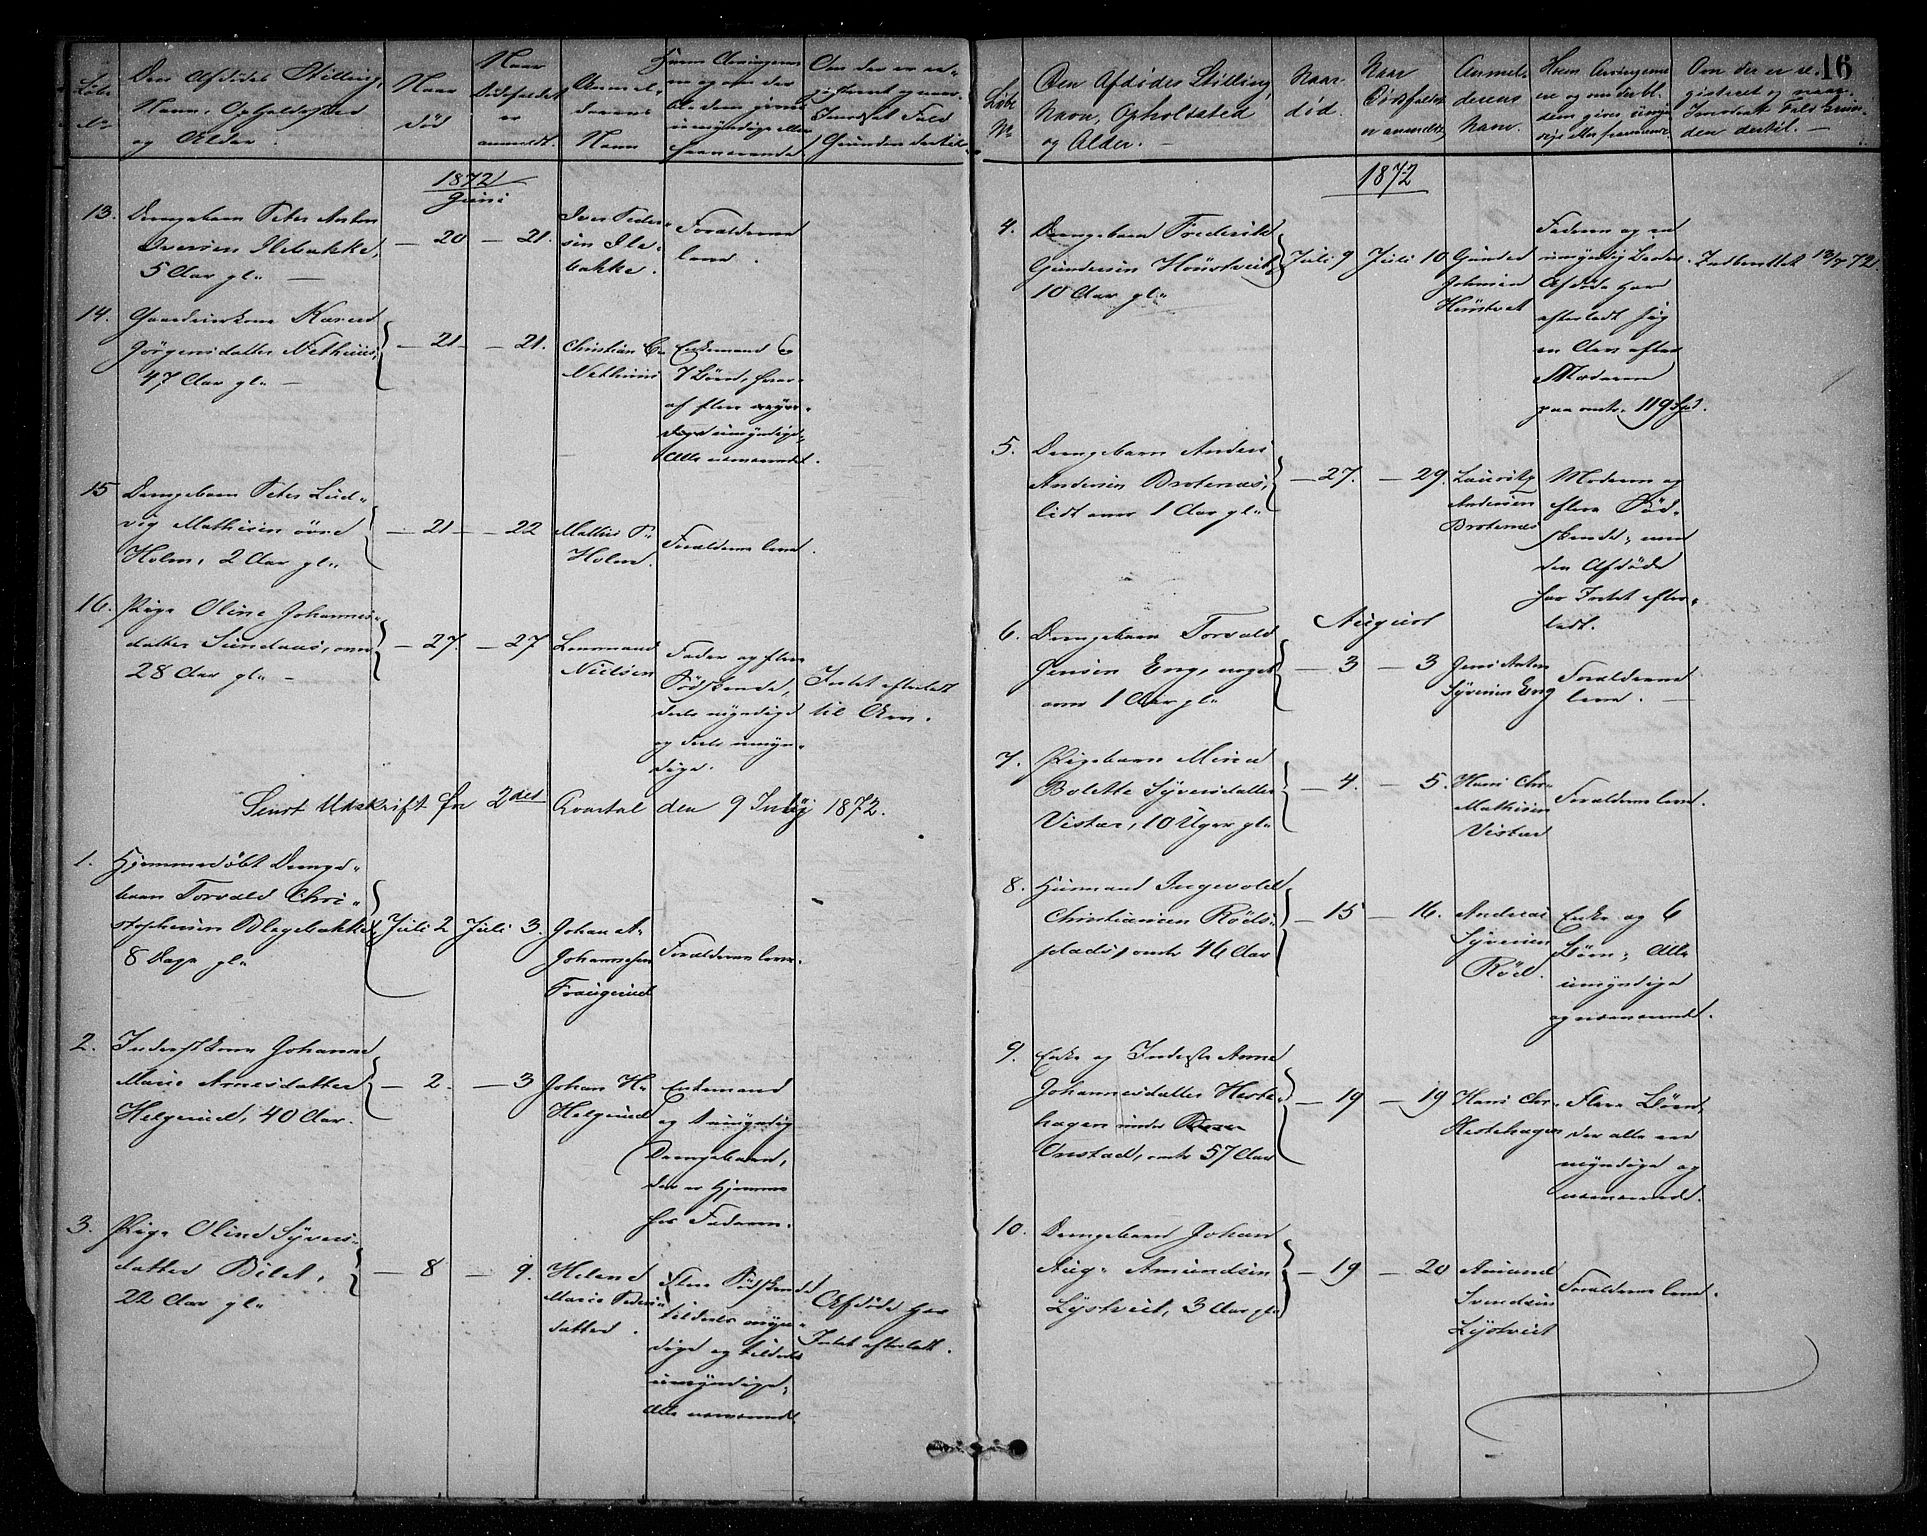 Løbe
No
Den Afdødes Stilling,
Navn, Opholdssted
og Alder.
Naar
død
Naar
Dødsfaldet
er
anmeldt.
Anmel-
derens
Navn
Hvem Arvingerne
ere og om der
bl. dem gives
umyndige eller
fraværende
Om der er re-
gistreret og naar.
Intet Fald
Grunden dertil
1872
Juni
13. Drengebarn Peter Anton
Iversen Ilebakke,
5 Aar gl.
— 20 — 21.
Iver Peder-
sen Ile-
bakke.
Forældrene
leve.
14. Gaardmandskone Karen
Jørgensdatter Nethuus,
47 Aar gl.
— 21 — 21.
Christian C.
Nethuus
Enkemand og
7 Børn, hvor-
af flere
umyndige.
Alle nærværende.
15 Drengebarn Peter Lud-
vig Mathisen øvre
Holm, 2 Aar gl.
— 21 — 22
Mathis P.
Holm.
Forældrene leve.
16. Pige Oline Johannes-
datter Sundaas, over
28 Aar gl.
— 27. — 27
Lensmand
Nielsen
Fader og flere
Sødskende,
dels myndige
og dels umyn-
dige.
Intet efterladt
til Arv.
Sendt Udskrift for 2det Qvartal den 9 July 1872.
1. Hjemmedøbt Drenge-
barn Torvald Chri-
stophersen Blegebakke
8 Dage gl.
Juli 2 Juli 3.
Johan A.
Johannesen
Fraugerud
Forældrene leve.
2. Inderstkone Johanne
Marie Arnesdatter
Helgerud, 40 Aar.
— 2. — 3
Johan H.
Helgerud
Enkemand
og 1 umyndig
Drengebarn,
der er hjemme
hos Faderen.
3. Pige Oline Syvers-
datter Bilet,
22 Aar gl.
— 8 — 9.
Helene
Marie Peders-
datter.
Flere Sødskende
tildels myn-
dige og tildels
umyndige,
Alle nærværende
Afdøde har
Intet efterladt.
16
Løbe
No
Den Afdødes Stilling,
Navn, Opholdssted
og Alder.
Naar
død.
Naar
Dødsfaldet
er anmeldt
Anmel-
derens
Navn.
Hvem Arvingerne
ere og om der bl.
dem gives umyn-
dige eller fraværende
Om der er re-
gistreret og naar.
I modsat Fald Grun-
den dertil.
1872
4. Drengebarn Frederik
Gundersen Hønstveit,
10 Aar gl.
Juli 9 Juli 10
Gunder
Johnsen
Hønstvet
Faderen og en
umyndig Broder.
Afdøde har
efterladt sig
en Arv efter
Moderen
paa omtr. 119 Spd.
Indberettet 13/7 72.
5. Drengebarn Anders
Andersen Brotenæs,
lidt over 1 Aar gl.
— 27. — 29.
Lauritz
Andersen
Brotenæs
Moderen og
flere Sød-
skende, men
den Afdøde
har Intet efter-
ladt.
August
6. Drengebarn Torvald
Jensen Eng, noget
over 1 Aar gl.
— 3 — 3
Jens Anton
Syversen Eng
Forældrene
leve.
7. Pigebarn Mina
Bolette Syversdatter
Vister, 10 Uger gl.
— 4. — 5.
Hans Chr.
Mathisen
Vister
Forældrene leve.
8. Husmand Ingevold
Christiansen Røds-
plads, omtr 46 Aar
— 15 — 16.
Andreas
Syversen
Rød.
Enke og 6
Børn, Alle
umyndige
og nærværende.
9. Enke og Inderste Anne
Johannesdatter Heste-
hagen under
Onstad, omtr 57 Aar
— 19 — 19
Hans Chr.
Hestehagen
Flere Børn,
der alle ere
myndige og
nærværende.
10. Drengebarn Johan
Aug. Amundsen
Lystveit, 3 Aar gl.
— 19 — 20
Amund
Svendsen
Lystveit
Forældrene leve.